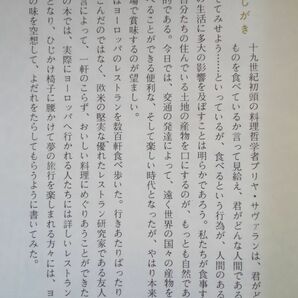 しがき
十九世紀初頭の料理哲学者ブリヤ・サヴァランは、君がど
ものを食べているか言って見給え、君がどんな人間である
てみせよう……といっているが、食べるという行為が、人間のある
の生活に多大の影響を及ぼすことは明らかであろう。私たちが食事す
分たちの住んでいる土地の産物を口にするのが、もっとも自然であ
的である。今日では、交通の発達によって、遠く世界の国々の産物を
べることができる便利な、そして楽しい時代となったが、やはり本来
場で賞味するのが望ましい。
はヨーロッパのレストランを数百軒食べ歩いた。行きあたりばったり
こんだのではなく、欧米の堅実な優れたレストラン研究家である友人
言によって、一軒のこらず、おいしい料理にめぐりあうことができた
の本では、実際にヨーロッパへ行かれる人たちには詳しいレストラン
となり、ひじかけ椅子に腰かけて夢の旅行を楽しまれる方々には、ヨ
の味を空想して、よだれをたらしてもらうように書いてみた。